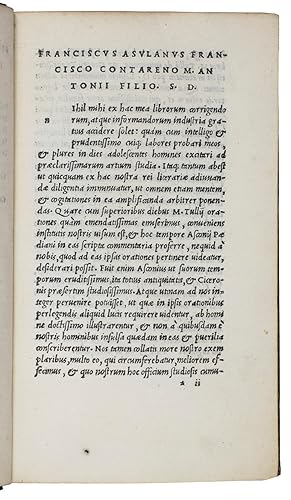 FRANCISCVS ASVLANVS FRAN-
CISCO CONTARENO M. AN
TONII FILIO. S. D.
n Ihil mihi ex hac mea librorum corrigendo
rum, atque informandorum industria gra
tius accidere solet: quàm cum intelligo &
prudentissimo cuiq; labores probari meos,
& plures in dies adolescentes homines excitari ad
præclarissimarum artium studia. Itaq; tantum abest
ut quicquam ex hac nostra rei literariæ adiuuan-
dæ diligentia immunuatur, ut omnem etiam mentem,
& cogitationes in ea amplificanda arbitrer ponen-
das. Quare cum superioribus diebus M. Tullij ora-
tiones quàm emendatissimas emiserimus, conueniens
instituto nostris usum est, & hoc tempore Asconij Pe
diani in eas scripta commentaria proferre, nequid a
nobis, quod ad eas ipsas orationes pertinere uideatur,
desiderari possit. Fuit enim Asconius ut suorum tem-
porum eruditissimus, ita totius antiquitatis, & Cicero-
nis præsertim studiosissimus. Atque utinam ad nos in-
teger peruenire potuisset, ut quæ in ipsis orationibus
perlegendis aliquid lucis requirere uidentur, ab homi
ne doctissimo illustrarentur, & non à quibusdam è
nostris hominibus insulsa quædam in eas & puerilia
conscriberentur. Nos tamen collatis more nostro exem
plaribus, multo eo, qui circumferebatur, meliorem ef-
fecimus, & quo nostrum hoc officium studiosis cumu-
a ii